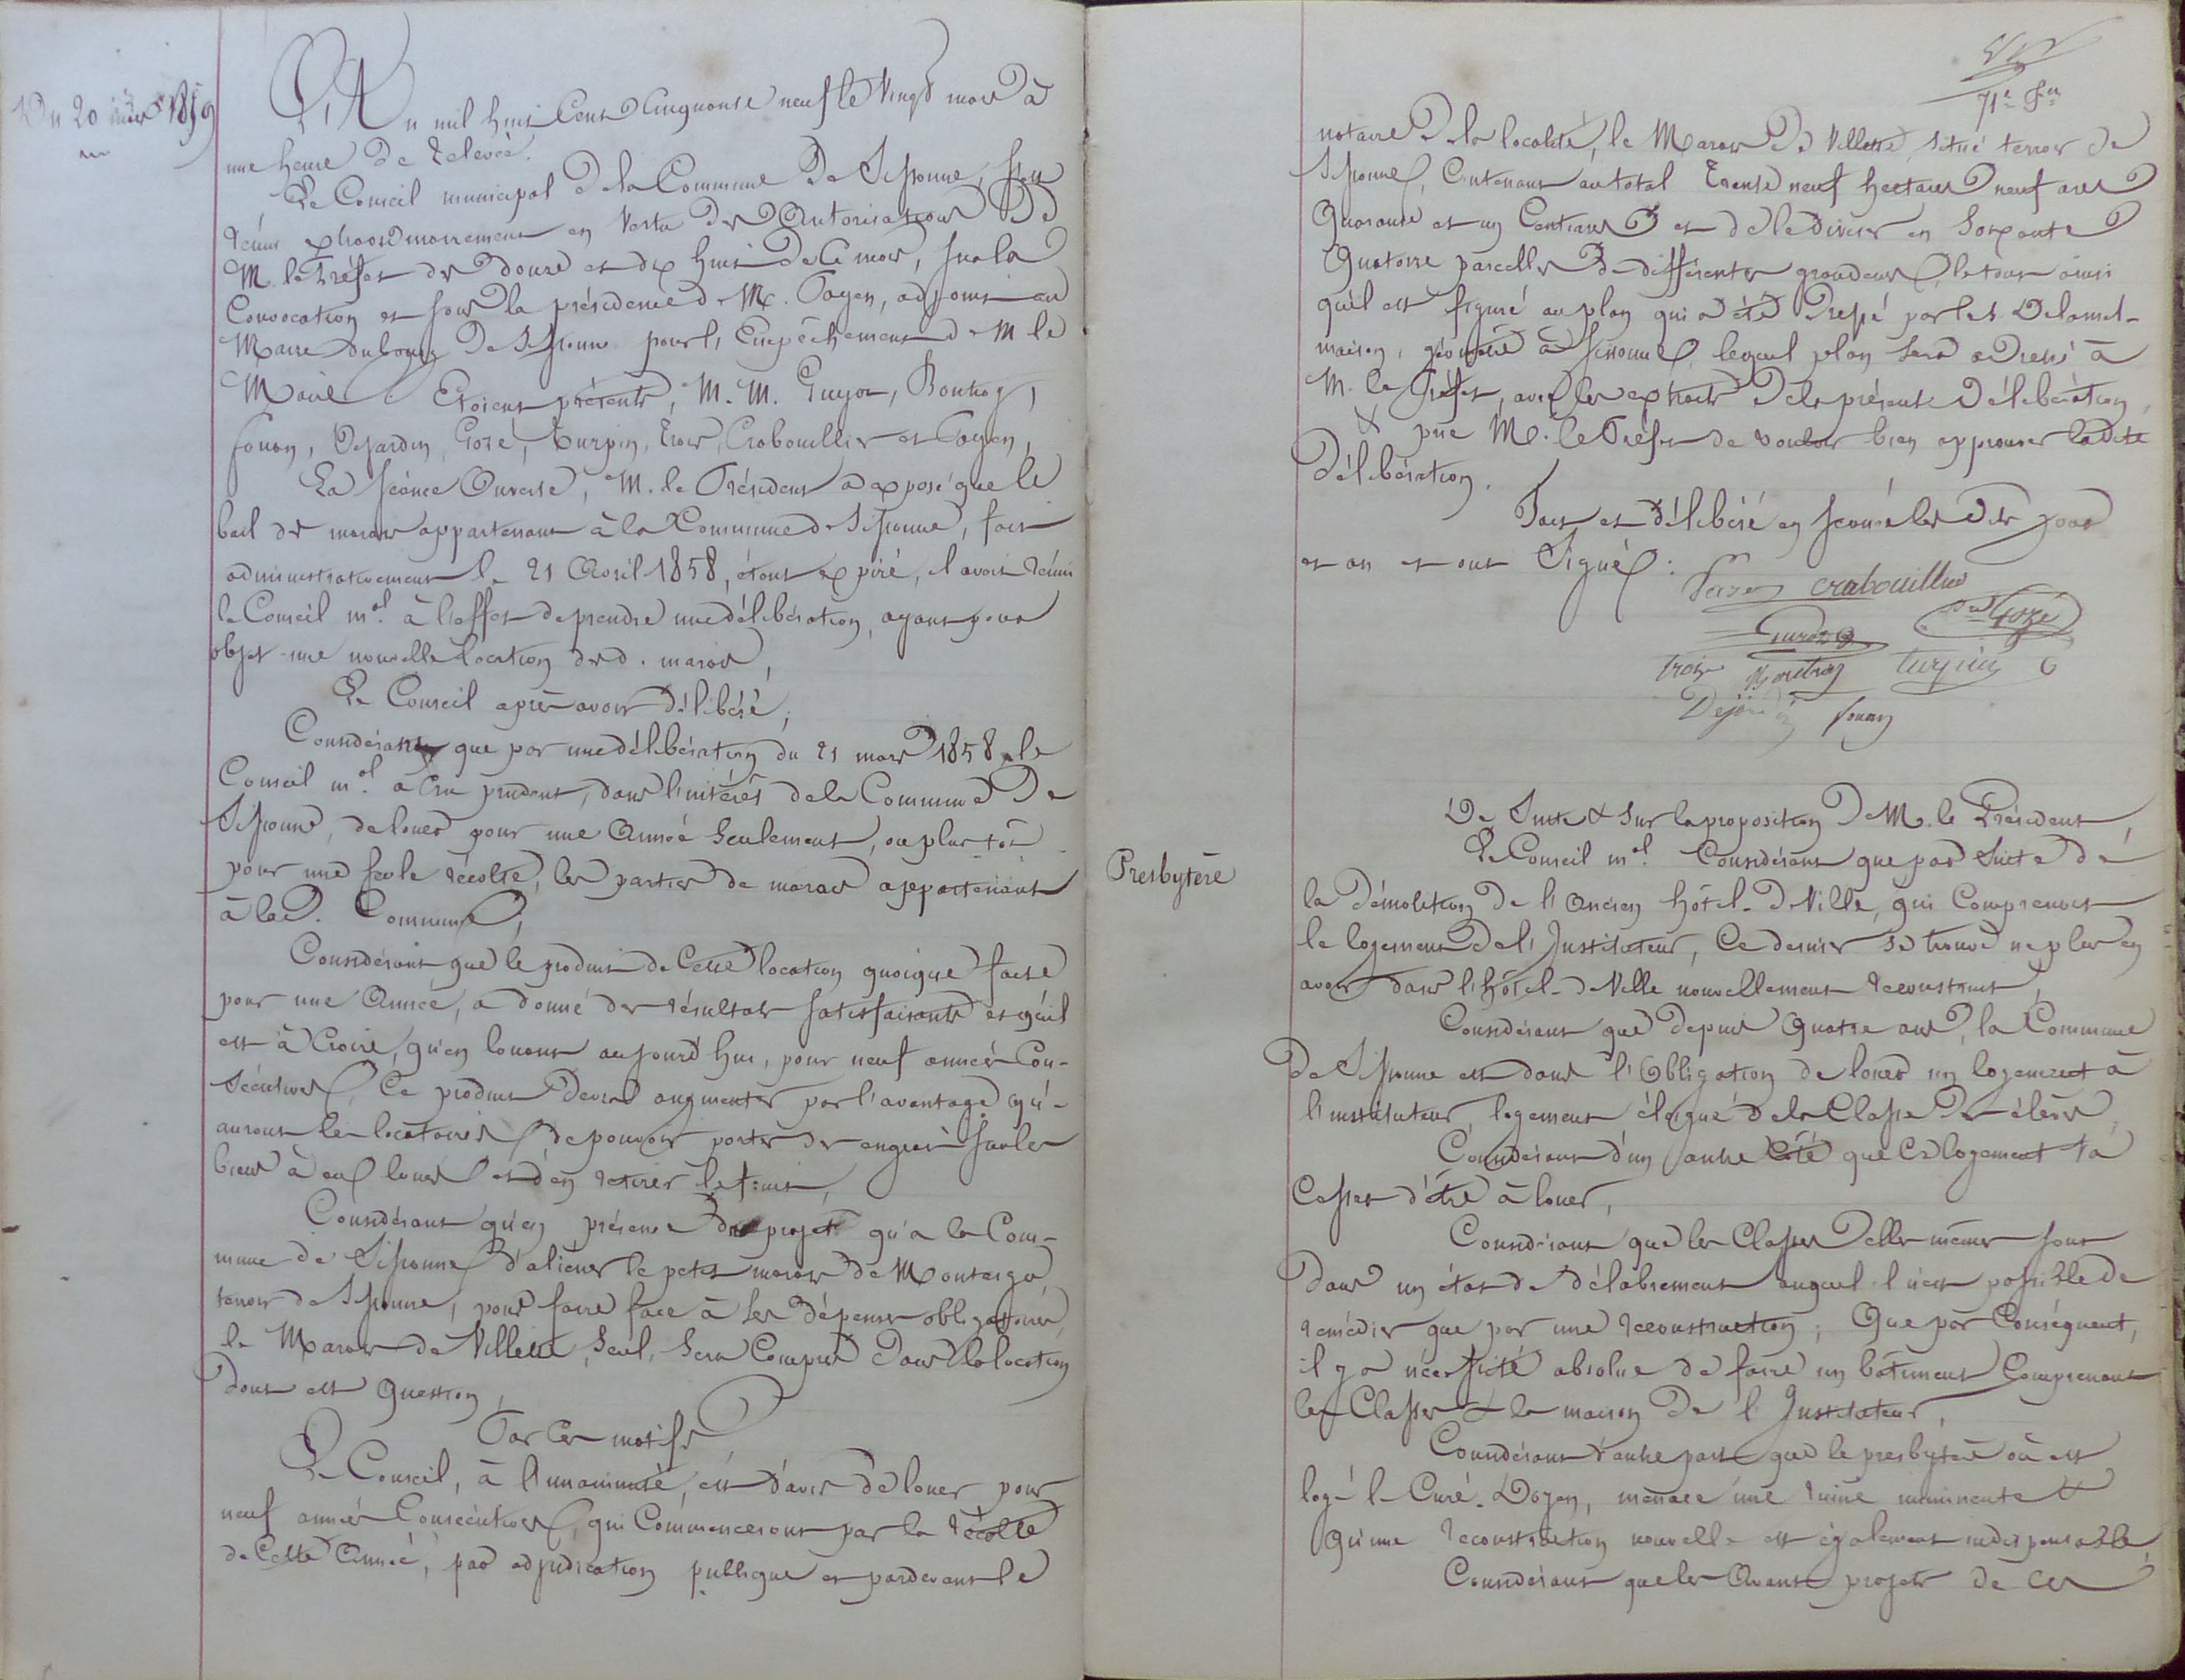 Du 20 mars 1859
L'An mil huit Cent Cinquante neuf le Vingt mars à
une heure de relevée.
Le Conseil municipal de la Commune de Sissonne, s'est
réuni extraordinairement en vertu des Autorisations de
M. le Préfet des douze et dix huit de ce mois, sur la
Convocation et sous la présidence de M. Payen, adjoint au
Maire du bourg de Sissonne pour l'Empêchement de M. le
Maire. Etoient présents, M. M. Guyot, Boutroy,
fouan, Dejardin, Gozé, Turpin, Trois, Crabouillier et Payen,
La séance Ouverte, M. le Président a exposé que le
bail des marais appartenant à la Commune de Sissonne, fait
administrativement le 21 Avril 1858, étant expiré, il avoit réuni
le Conseil m.al à l'effet de prendre une délibération, ayant pour
objet une nouvelle location des d. marais,
Le Conseil après avoir délibéré,
Considérant que par une délibération du 21 mars 1858, le
Conseil m.al a Cru prudent, dans l'intérêt de la Commune de
Sissonne, de louer pour une Année seulement, ou plus tôt
pour une seule récolte, les parties de marais appartenant
à lad. Commune,
Considérant que le produit de Cette location quoique faite
pour une Année, a donné des résultats satisfaisants et qu'il
est à Croire, qu'en louant aujourd'hui, pour neuf années Con-
sécutives, Ce produit devra augmenter par l'avantage qu'-
auront les locataires, de pouvoir porter des engrais sur les
biens à eux loués et d'en retirer le fruit,
Considérant qu'en présence du projet qu'a la Com-
mune de Sissonne d'aliéner le petit marais de Montaigu
terroir de Sissonne, pour faire face à ses dépenses obligatoires,
le Marais de Villette, seul, sera Compris dans la location
dont est Question,
Par Ces motifs
Le Conseil, à l'unanimité, est d'avis de louer pour
neuf années Consécutives, qui Commenceront par la récolte
de Cette Année, par adjudication publique et pardevant le
71.e F.et
notaire de la localité, le Marais de Villette, situé terroir de
Sissonne, Contenant au total Trente neuf hectares neuf ares
Quarante et un Centiares et de le diviser en Soixante
Quatorze parcelles de différentes grandeurs, le tout ainsi
qu'il est figuré au plan qui a été dressé par le S. Delamai-
maison, géomètre à Sissonne, lequel plan sera adressé à
M. le Préfet, avec les extraits de la présente délibération,
& prie M. le Préfet de vouloir bien approuver ladite
délibération.
Fait et délibéré en séance les dits jour
et an et ont Signé :
Payen Crabouillier
Gozé
Trois Boutroy Turpin
Dejardin fouan
De Suite & sur la proposition de M. le Président,
Presbytère
Le Conseil m.al Considérant que par suite de
la démolition de l'Ancien hôtel-de Ville, qui Comprenoit
le logement de l'Instituteur, Ce dernier se trouve ne plus en
avoir dans l'hôtel-de Ville nouvellement reconstruit,
Considérant que depuis Quatre ans, la Commune
de Sissonne est dans l'Obligation de louer un logement à
l'instituteur, logement éloigné de la Classe des élèves,
Considérant d'un autre Côté que Ce logement va
Cesser d'être à louer,
Considérant que les Classes elles-mêmes sont
dans un état de délabrement auquel il n'est possible de
remédier que par une reconstruction ; Que par Conséquent,
il y a nécessité absolue de faire un bâtiment Comprenant
les Classes & la maison de l'Instituteur,
Considérant d'autre part que le presbytère où est
logé le Curé-Doyen, menace une ruine imminente &
Qu'une reconstruction nouvelle est également indispensable,
Considérant que les Avant projets de Ces